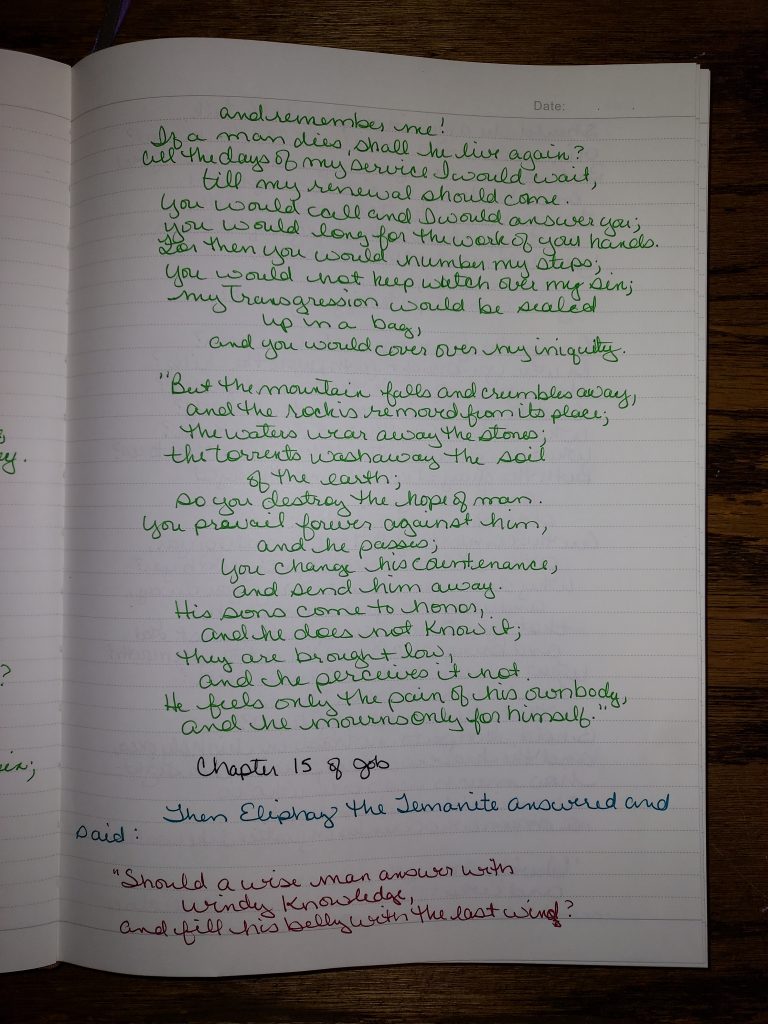 Date:
and remember me!
If a man dies, shall he live again?
all the days of my service I would wait,
till my renewal should come.
You would call and I would answer you;
you would long for the work of your hands.
For then you would number my steps;
you would not keep watch over my sin;
my transgression would be sealed
up in a bag,
and you would cover over my iniquity.
"But the mountain falls and crumbles away,
and the rock is removed from its place;
the waters wear away the stones;
the torrents wash away the soil
of the earth;
so you destroy the hope of man.
You prevail forever against him,
and he passes;
you change his countenance,
and send him away.
His sons come to honor,
and he does not know it;
they are brought low,
and he perceives it not.
He feels only the pain of his own body,
and he mourns only for himself."
Chapter 15 of Job
Then Eliphaz the Temanite answered and
said:
"Should a wise man answer with
windy knowledge,
and fill his belly with the east wind?